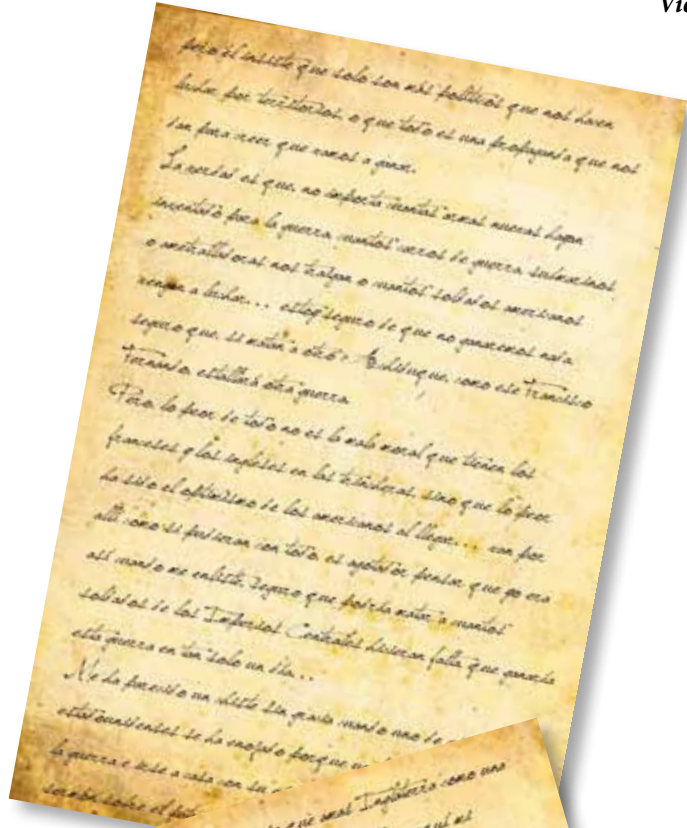 Vie
pero él insiste que solo son más políticos que nos hacen
luchar por territorios, o que todo es una propaganda que nos
dan para creer que vamos a ganar.
La verdad es que, no importa cuantas armas nuevas hayan
inventado para la guerra, cuantos carros de guerra, submarinos
o ametralladoras nos traigan o cuantos soldados americanos
vengan a luchar... estoy seguro de que no ganaremos nada
seguro que, si matan a otro Archiduque, como ese Francisco
Fernando, estallará otra guerra.
Pero, lo peor de todo no es la mala moral que tienen los
franceses y los ingleses en las trincheras, sino que lo peor
ha sido el optimismo de los americanos al llegar... van por
allí como si pudieran con todo, es agotador pensar que yo era
así cuando me enlisté. Seguro que podría matar a cuantos
soldados de los Imperios Centrales hicieran falta, que ganaría
esta guerra en tan solo un día...
Me ha parecido un chiste sin gracia cuando uno de
estadounidenses se ha enojado porque
la guerra e irse a casa con su
sermón sobre el
que amas Inglaterra como una